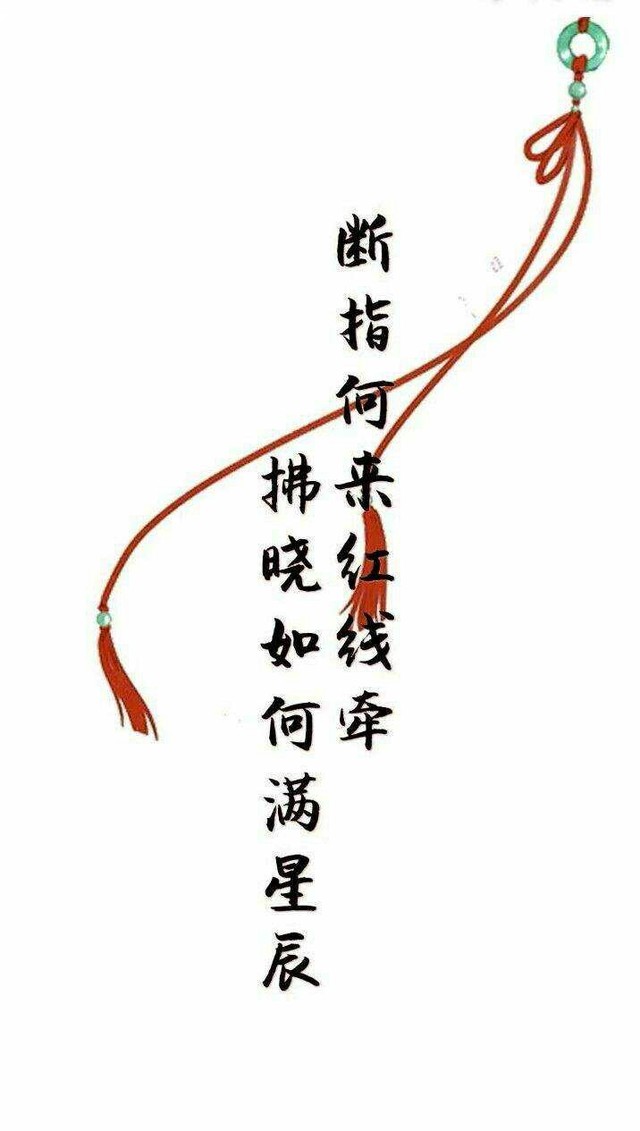 断指何来红线牵
拂晓如何满星辰